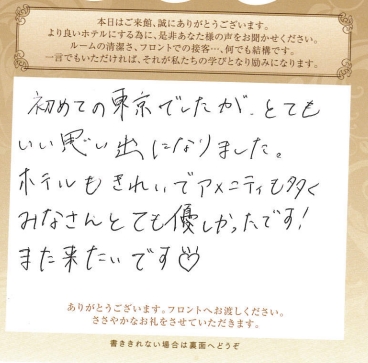 本日はご来館、誠にありがとうございます。
より良いホテルにする為に、是非あなた様の声をお聞かせください。
ルームの清潔さ、フロントでの接客…、何でも結構です。
一言でもいただければ、それが私たちの学びとなり励みになります。
初めての東京でしたが、とても
いい思い出になりました。
ホテルもきれいでアメニティも多く
みなさんとても優しかったです!
また来たいです♡
ありがとうございます。フロントへお渡しください。
ささやかなお礼をさせていただきます。
書ききれない場合は裏面へどうぞ